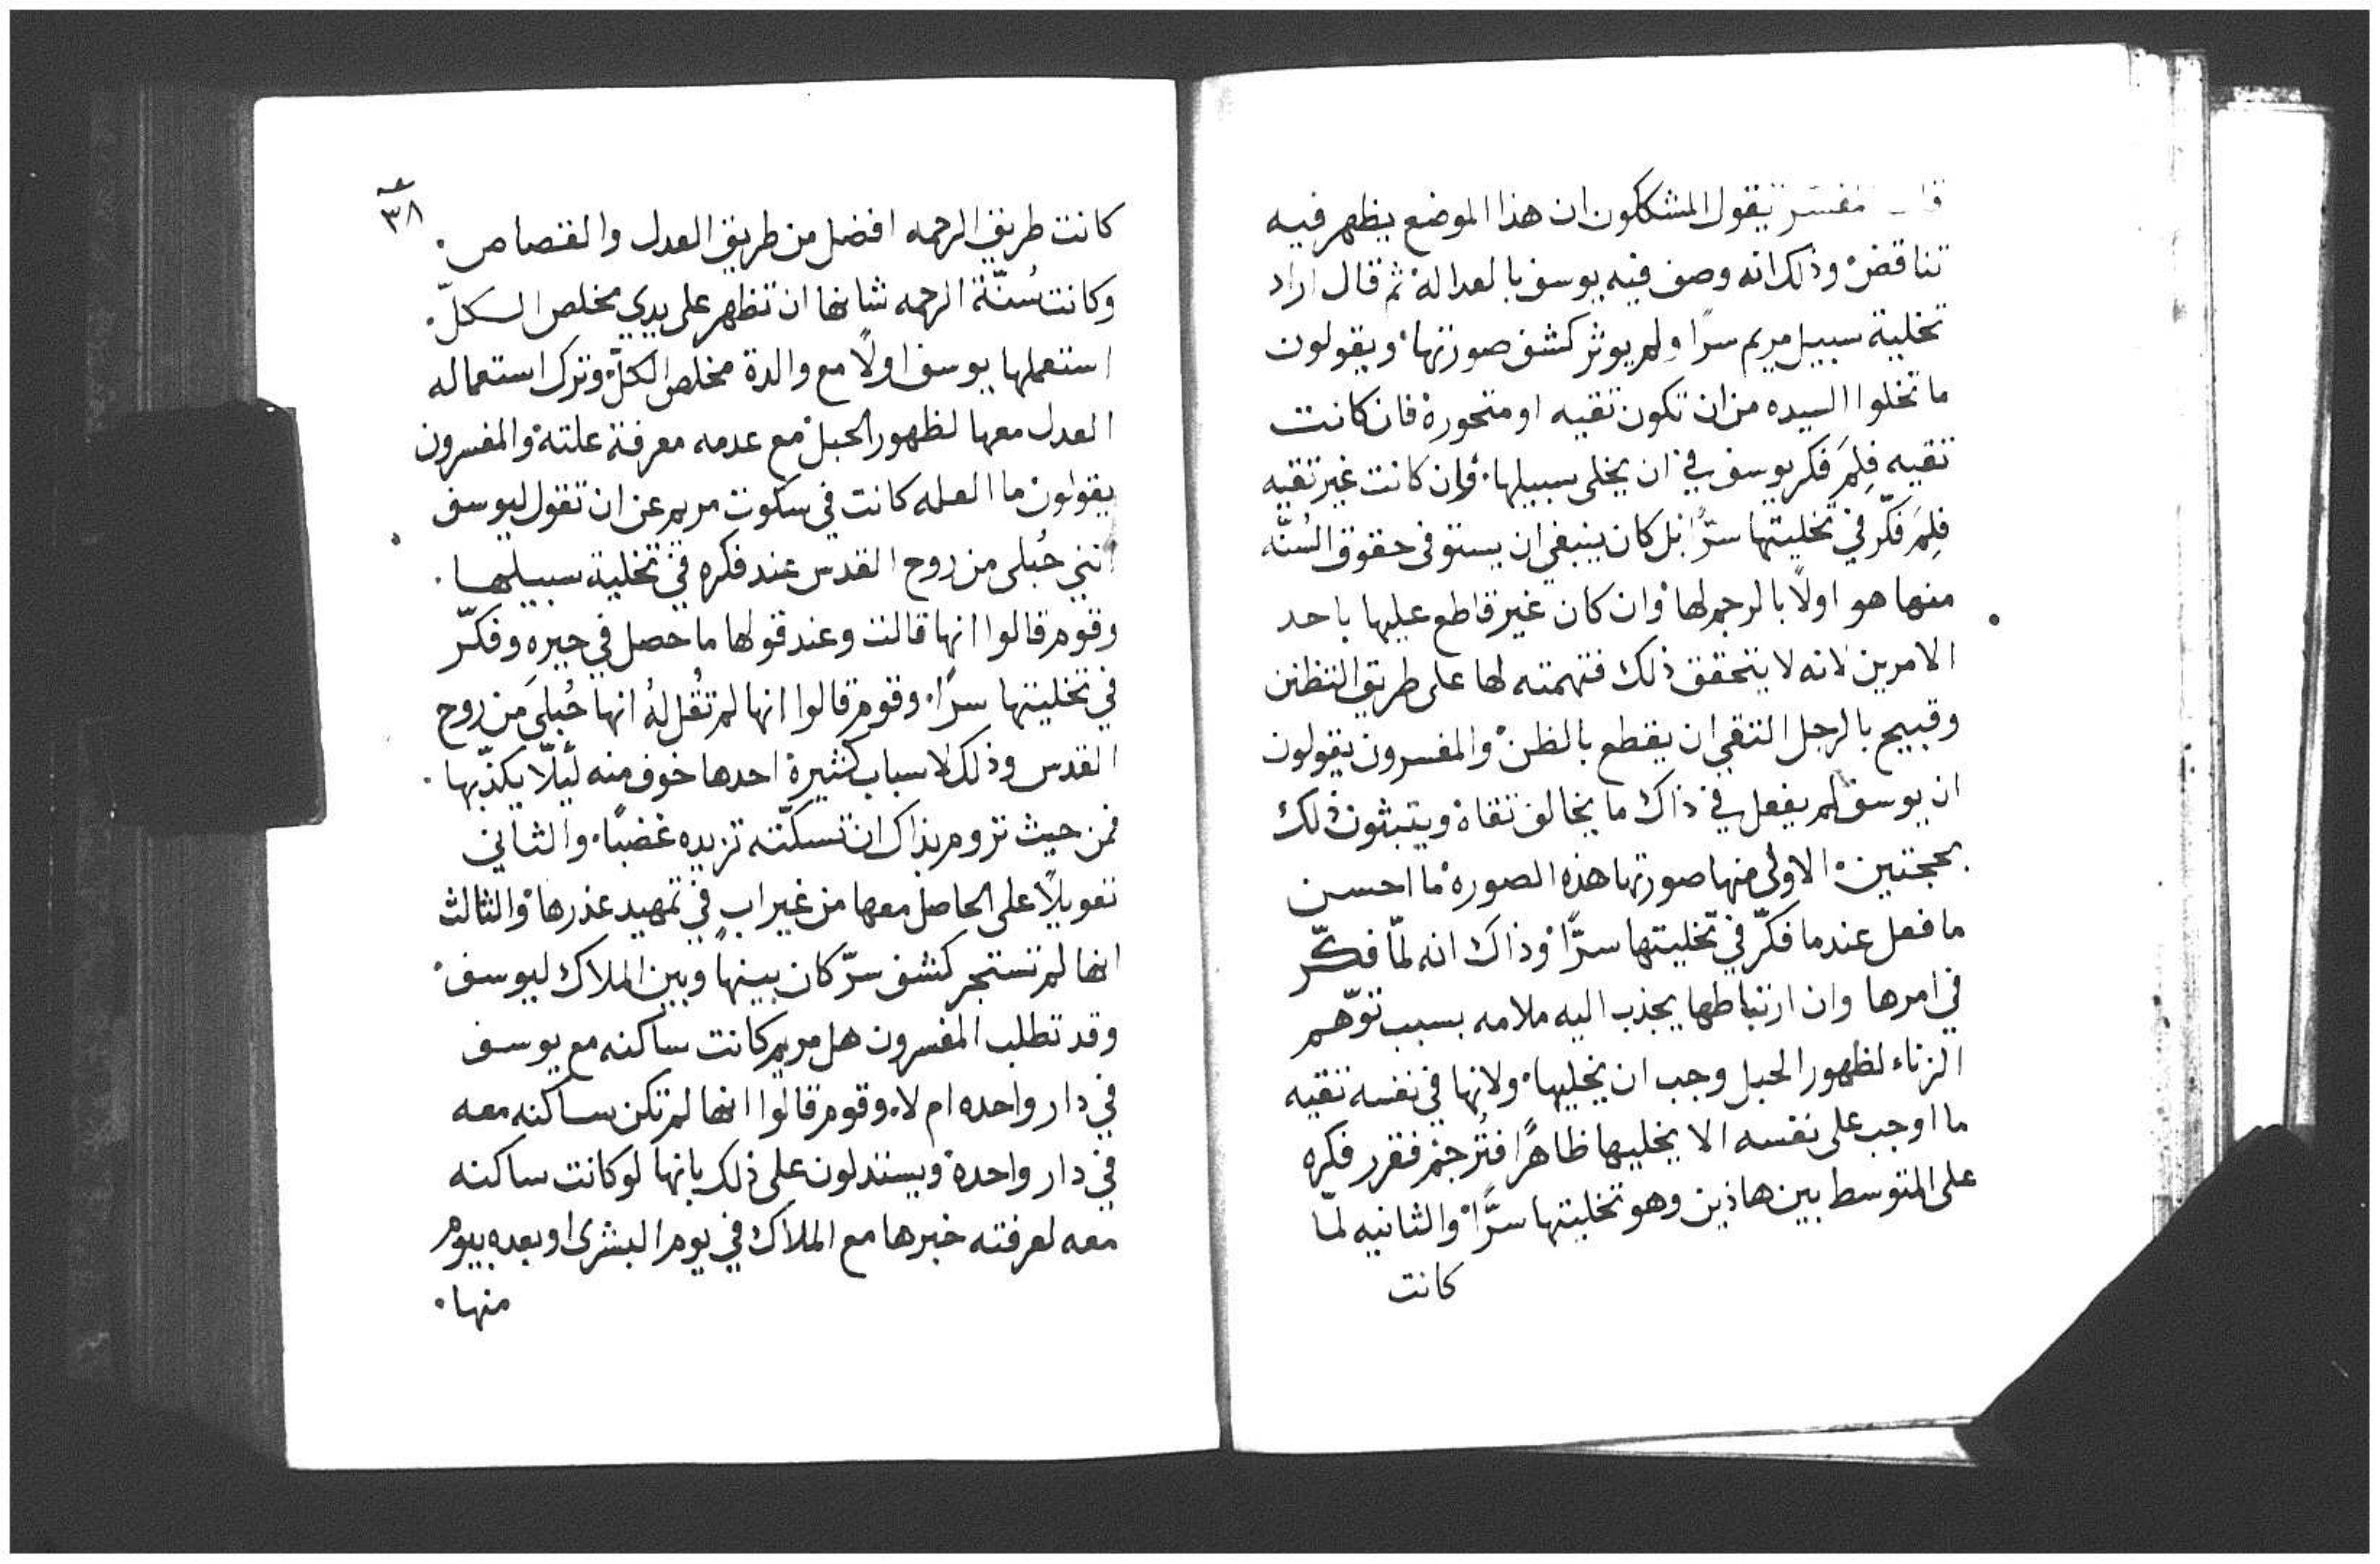 مفسر يقول المشككون ان هذا الموضع يظهر فيه
تناقض وذلك انه وصف فيه يوسف بالعداله ثم قال اراد
تخلية سبيل مريم سرًا ولم يوثر كشف صورتها ويقولون
ما تخلوا السيده من ان تكون تقيه او متحورة فان كانت
تقيه فلِمَ فكر يوسف في ان يخلى سبيلها. وان كانت غير تقيه
فلِمَ فكّر في تخليتها سرًّا بل كان ينبغي ان يستوفى حقوق السُنّه
منها هو اولًا بالرجم لها وان كان غير قاطع عليها باحد
الامرين لانه لا يتحقق ذلك فتهمته لها على طريق التظنن
وقبيح بالرجل التقي ان يقطع بالظن والمفسرون يقولون
ان يوسف لم يفعل في ذاك ما يخالف تقاة ويثبتون ذلك
بحجتين. الاولى منها صورتها هذه الصورة ما احسن
ما فعل عندما فكّر في تخليتها سرًّا وذاك انه لمّا فكّر
في امرها وان ارتباطها يجذب اليه ملامه بسبب توّهم
الزناء لظهور الحبل وجب ان يخليها. ولانها في نفسه تقيه
ما اوجب على نفسه الا يخليها ظاهرًا فتُرجَم فقرر فكره
على المتوسط بين هاذين وهو تخليتها سرًّا والثانيه لمّا
كانت
٣٨
كانت طريق الرحمه افضل من طريق العدل والقصاص.
وكانت سُنّة الرحمه شانها ان تظهر على يدي مخلص الكلّ.
استعملها يوسف اولًا مع والدة مخلص الكلّ وترك استعماله
العدل معها لظهور الحبل مع عدمه معرفة علته والمفسرون
يقولون ما العله كانت في سكوت مريم عن ان تقول ليوسف
انني حُبلى من روح القدس عند فكره في تخلية سبيلها.
وقوم قالوا انها قالت وعند قولها ما حصل في حيره وفكّر
في تخليتها سرًا. وقوم قالوا انها لم تقُل لهُ انها حُبلى من روح
القدس وذلك لاسباب كثيرة احدها خوف منه ليّلا يكذّبها.
فمن حيث تروم بذاك ان تسكّته تزيده غضبًا. والثاني
تعويلًا على الحاصل معها من غير ابٍ في تمهيد عذرها والثالث
انها لم تستجر كشف سرّ كان بينها وبين الملاك ليوسف.
وقد تطلب المفسرون هل مريم كانت ساكنه مع يوسف
في دار واحده ام لا. وقوم قالوا انها لم تكن ساكنه معه
في دار واحدة ويستدلون على ذلك بانها لو كانت ساكنه
معه لعرفته خبرها مع الملاك في يوم البشرى او بعده بيوم
منها.